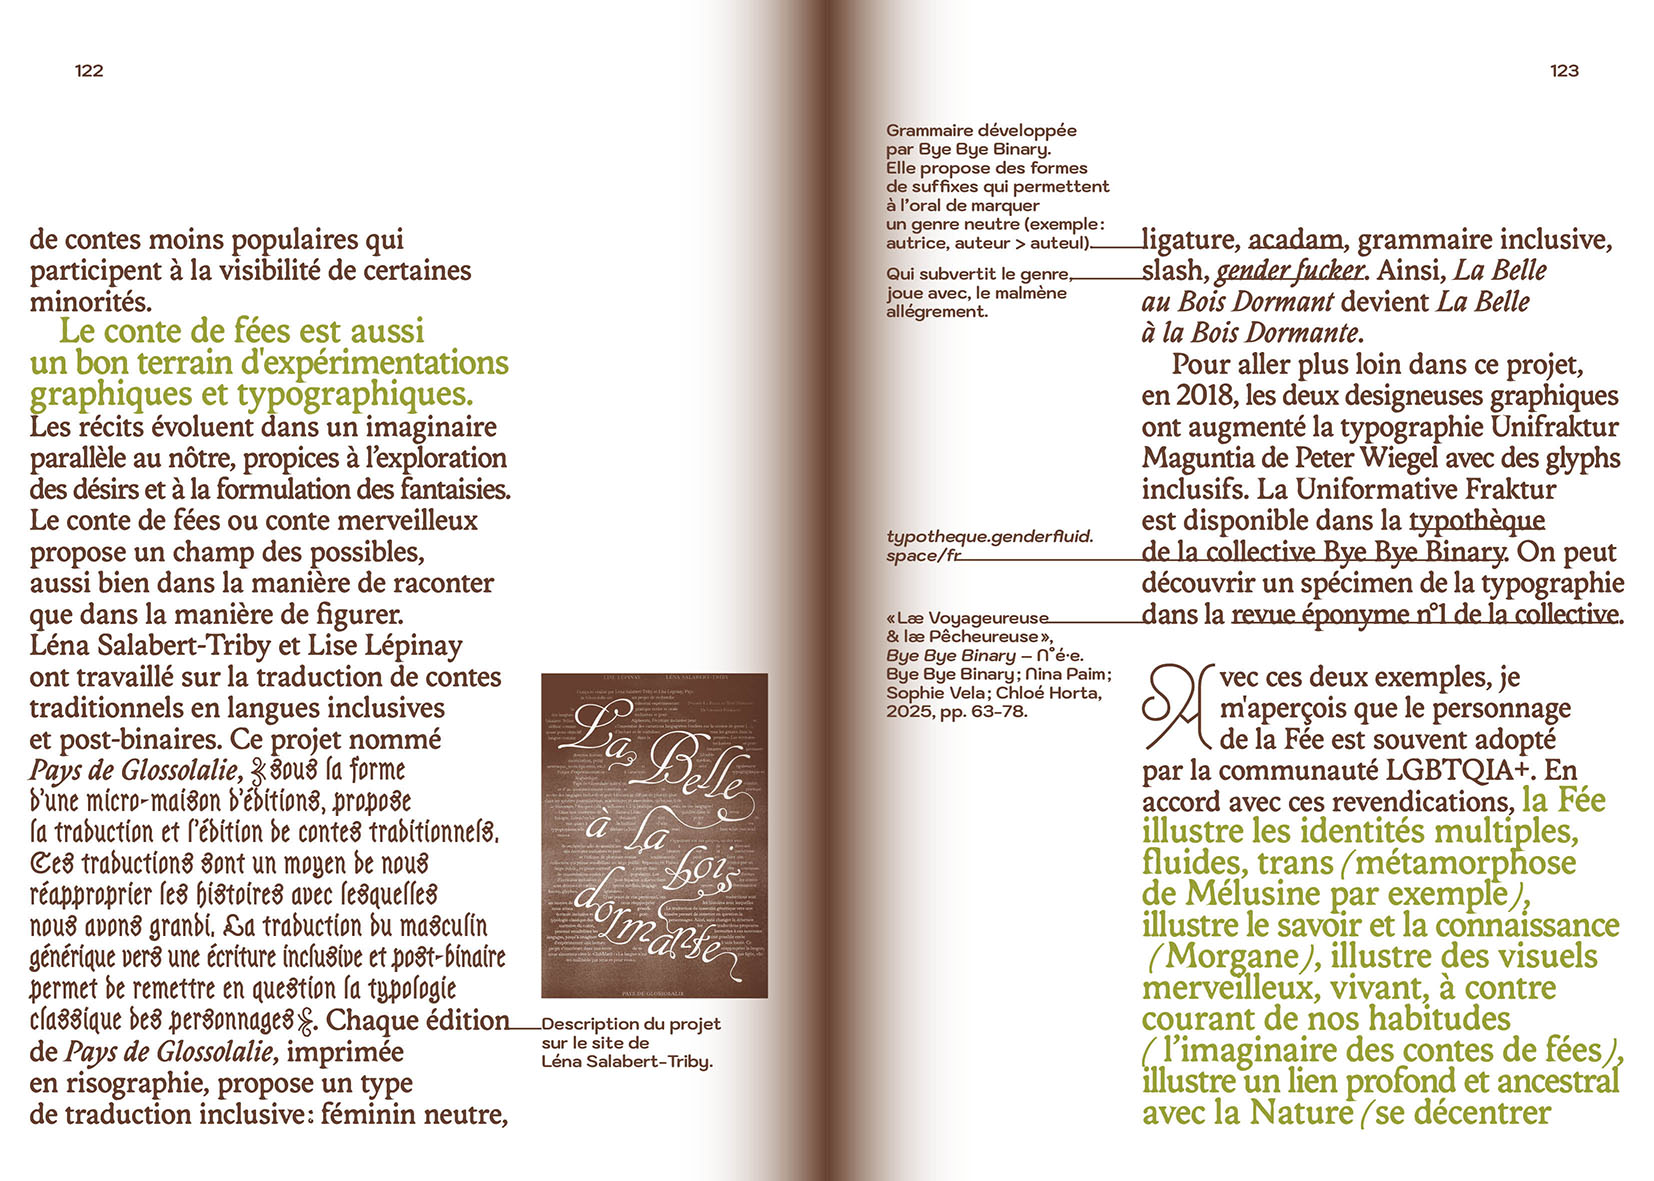 122
de contes moins populaires qui
participent à la visibilité de certaines
minorités.
Le conte de fées est aussi
un bon terrain d'expérimentations
graphiques et typographiques.
Les récits évoluent dans un imaginaire
parallèle au nôtre, propices à l'exploration
des désirs et à la formulation des fantaisies.
Le conte de fées ou conte merveilleux
propose un champ des possibles,
aussi bien dans la manière de raconter
que dans la manière de figurer.
Léna Salabert-Triby et Lise Lépinay
ont travaillé sur la traduction de contes
traditionnels en langues inclusives
et post-binaires. Ce projet nommé
Pays de Glossolalie, sous la forme
d'une micro-maison d'éditions, propose
la traduction et l'édition de contes traditionnels.
Ces traductions sont un moyen de nous
réapproprier les histoires avec lesquelles
nous avons grandi. La traduction du masculin
générique vers une écriture inclusive et post-binaire
permet de remettre en question la typologie
classique des personnages. Chaque édition
de Pays de Glossolalie, imprimée
en risographie, propose un type
de traduction inclusive : féminin neutre,
LISE LÉPINAY LÉNA SALABERT-TRIBY
La
Belle
à la
bois
dormante
PAYS DE GLOSSOLALIE
Description du projet
sur le site de
Léna Salabert-Triby.
123
Grammaire développée
par Bye Bye Binary.
Elle propose des formes
de suffixes qui permettent
à l'oral de marquer
un genre neutre (exemple :
autrice, auteur > auteul).
Qui subvertit le genre,
joue avec, le malmène
allégrement.
typotheque.genderfluid.
space/fr
« Læ Voyageureuse
& læ Pêcheureuse »,
Bye Bye Binary – n°é·e.
Bye Bye Binary ; Nina Paim ;
Sophie Vela ; Chloé Horta,
2025, pp. 63-78.
ligature, acadam, grammaire inclusive,
slash, gender fucker. Ainsi, La Belle
au Bois Dormant devient La Belle
à la Bois Dormante.
Pour aller plus loin dans ce projet,
en 2018, les deux designeuses graphiques
ont augmenté la typographie Unifraktur
Maguntia de Peter Wiegel avec des glyphs
inclusifs. La Uniformative Fraktur
est disponible dans la typothèque
de la collective Bye Bye Binary. On peut
découvrir un spécimen de la typographie
dans la revue éponyme n°1 de la collective.
Avec ces deux exemples, je
m'aperçois que le personnage
de la Fée est souvent adopté
par la communauté LGBTQIA+. En
accord avec ces revendications, la Fée
illustre les identités multiples,
fluides, trans (métamorphose
de Mélusine par exemple),
illustre le savoir et la connaissance
(Morgane), illustre des visuels
merveilleux, vivant, à contre
courant de nos habitudes
(l'imaginaire des contes de fées),
illustre un lien profond et ancestral
avec la Nature (se décentrer